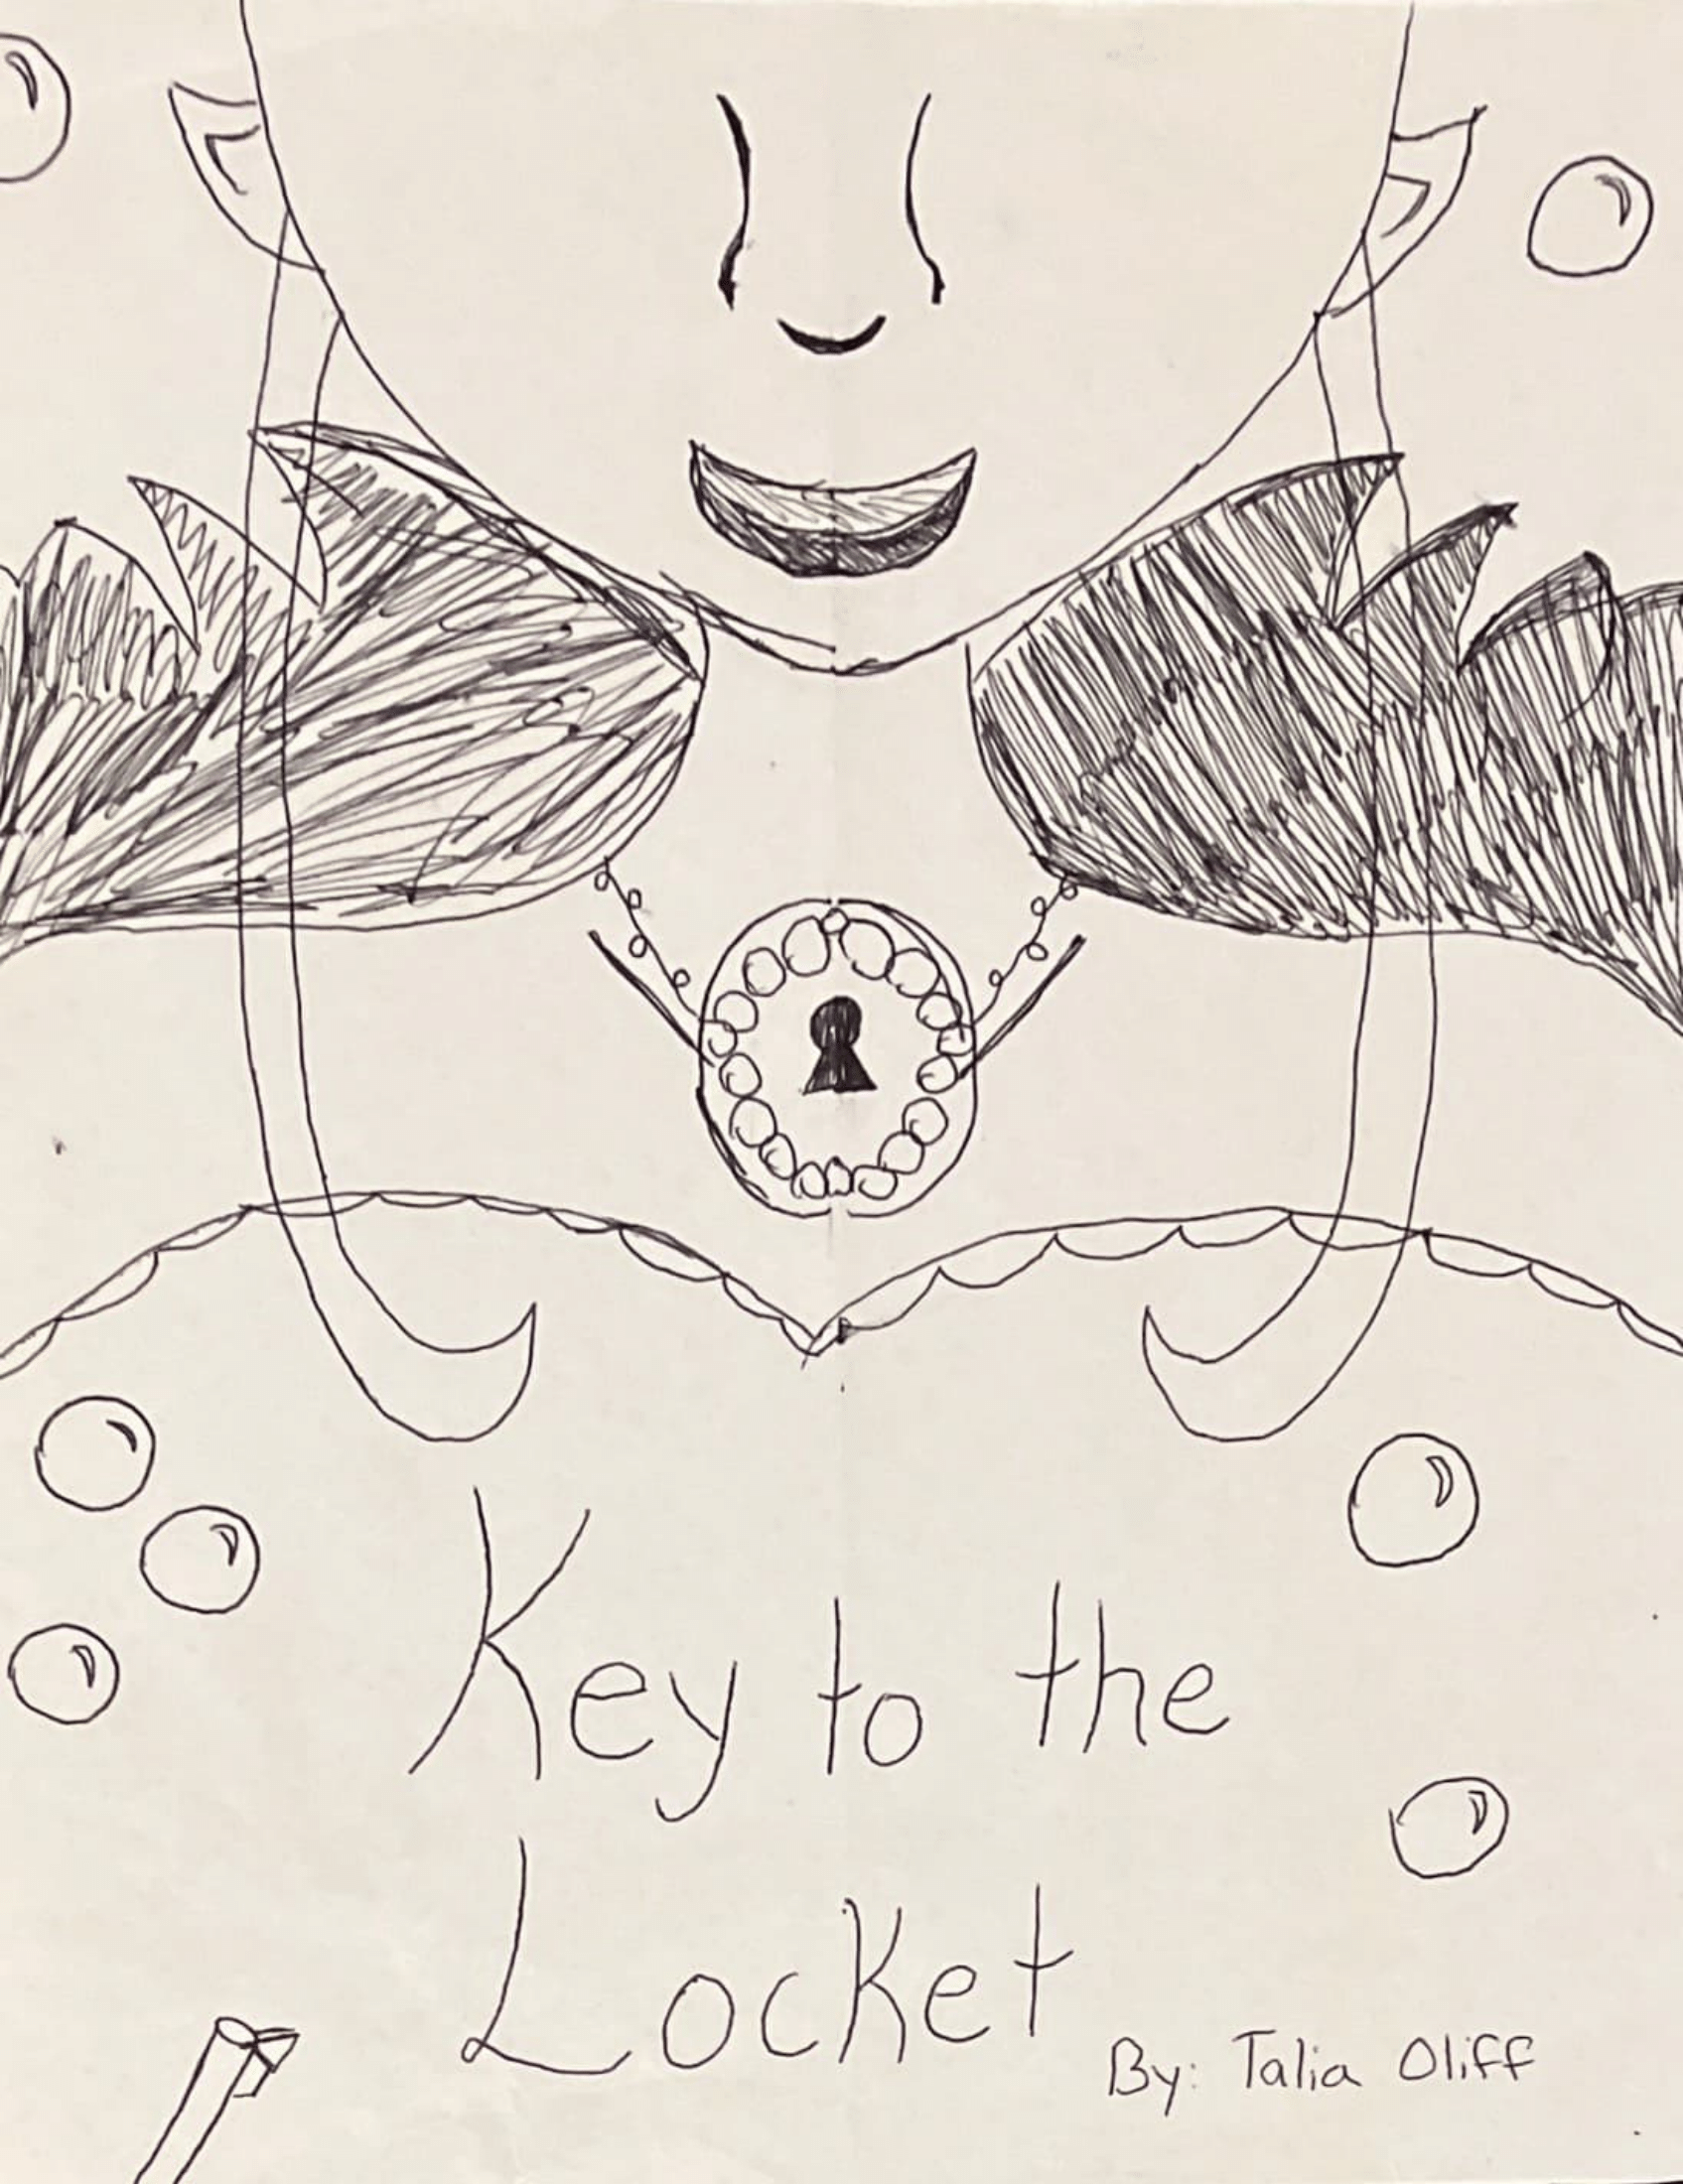 Key to the
Locket
By: Talia Oliff